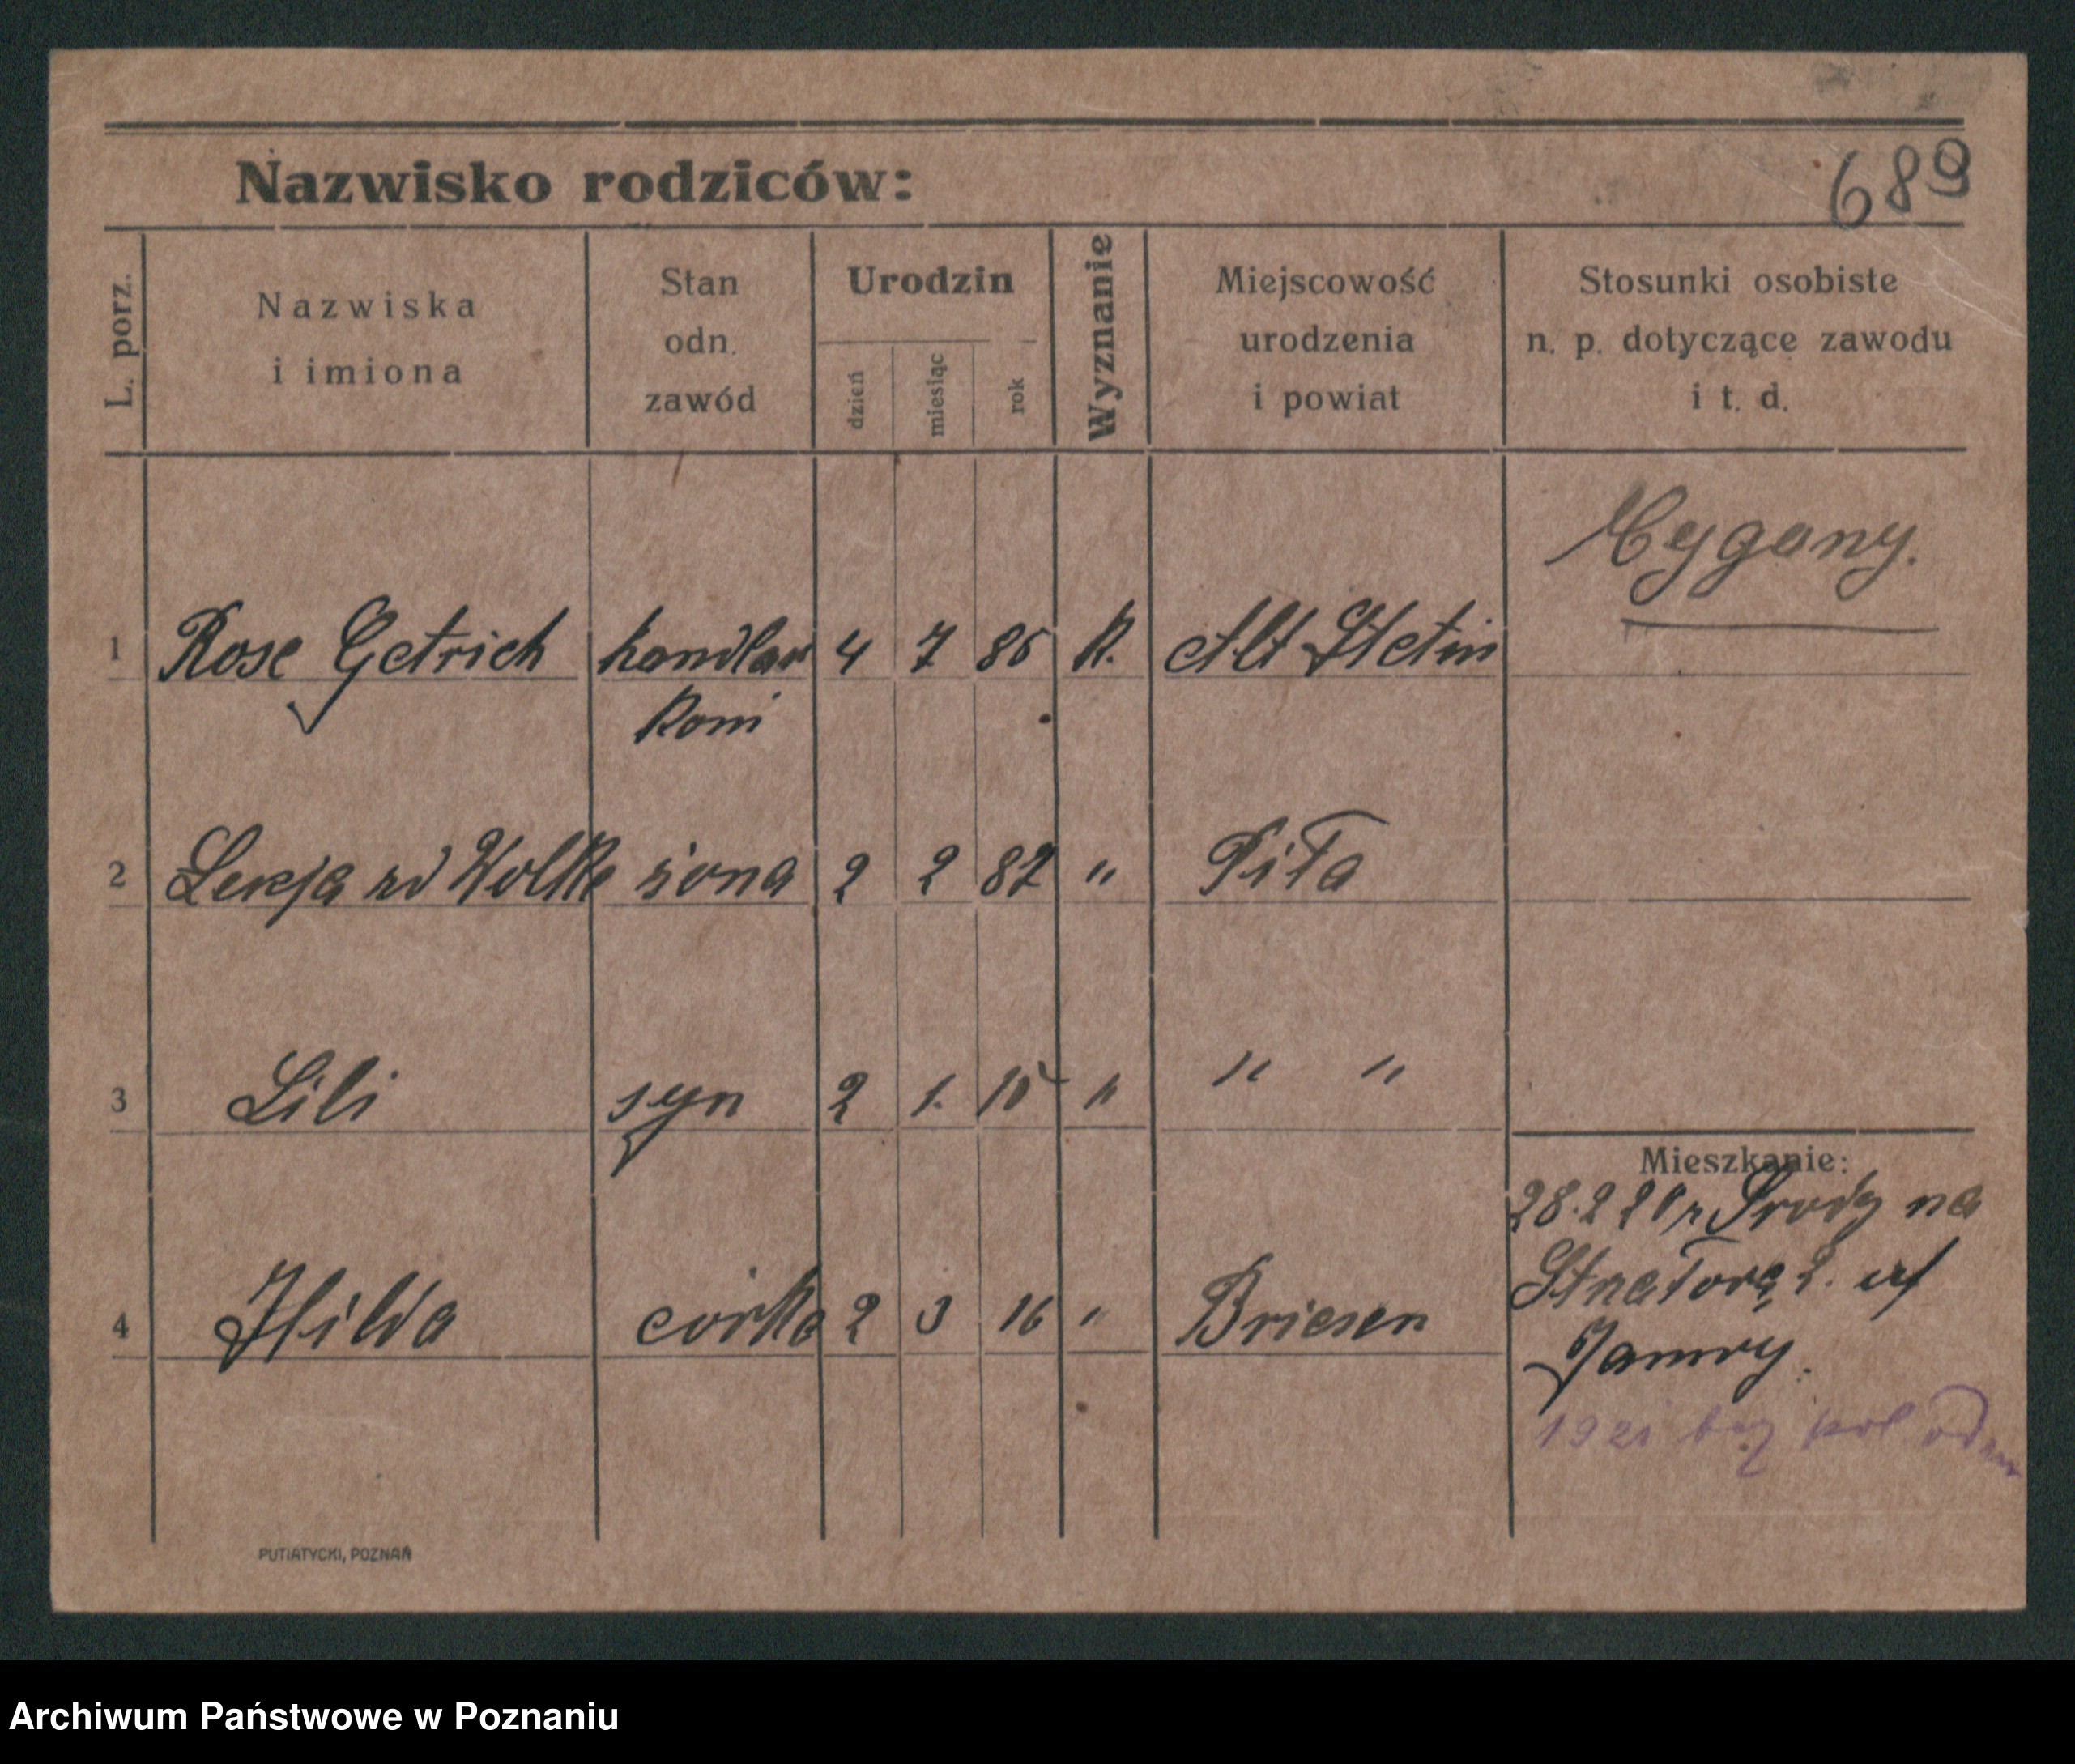 689
Nazwisko rodziców:
L. porz.
Nazwiska
i imiona
Stan
odn.
zawód
Urodzin
dzień
miesiąc
rok
Wyznanie
Miejscowość
urodzenia
i powiat
Stosunki osobiste
n. p. dotyczące zawodu
i t. d.
Cygany.
1 Rose Getrich handlarz 4 7 86 K. Alt Stetin
koni
2 zd Wolke żona 2 2 82 " Piła
3 Lili syn 2 1. 15 " " "
Mieszkanie:
28.2 na
4 Hilda córka 2 3 16 " Briesen
1921 bez pol
PUTIATYCKI, POZNAŃ
Archiwum Państwowe w Poznaniu